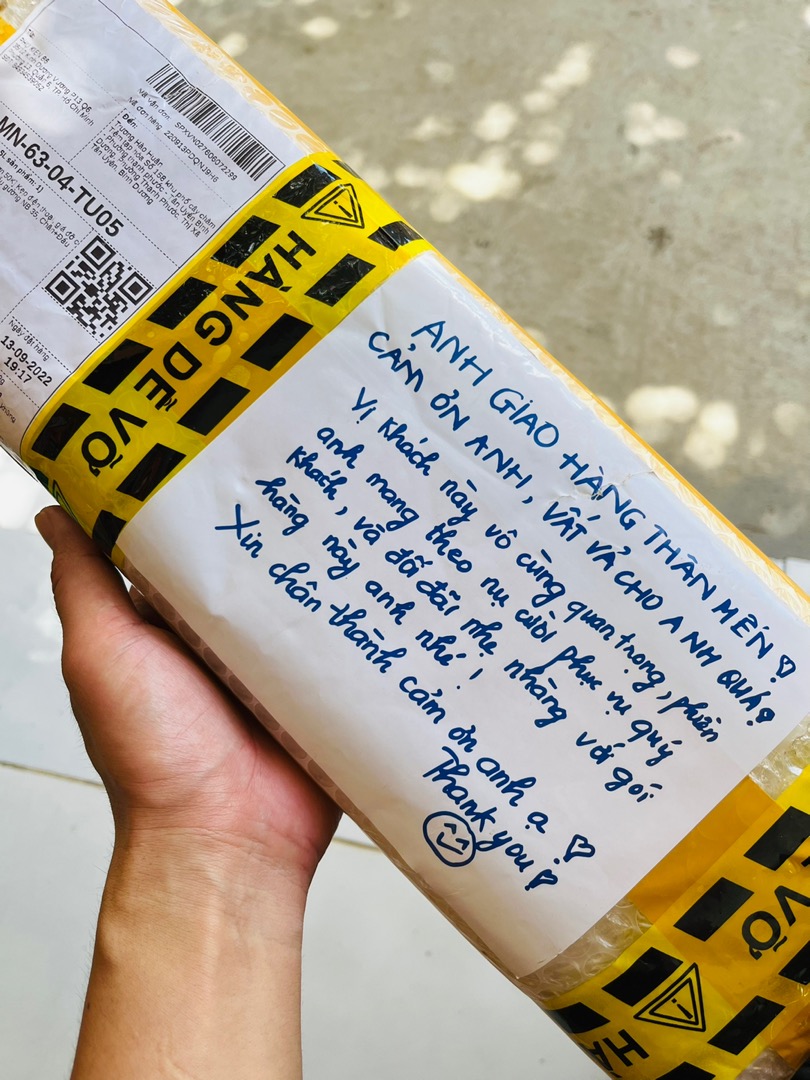 Mã vận đơn: SPXVN027608072299
Mã đơn hàng: 220913PDQNJ916
Đến:
Trương Hào Huân
MN-63-04-TU05
Ngày đặt hàng
13-09-2022
19:17
HÀNG DỄ VỠ
ANH GIAO HÀNG THÂN MẾN!
CẢM ƠN ANH, VẤT VẢ CHO ANH QUÁ!
Vị khách này vô cùng quan trọng, phiền
anh mang theo nụ cười phục vụ quý
khách, và đối đãi nhẹ nhàng với gói
hàng này anh nhé!
Xin chân thành cảm ơn anh ạ!
Thank you!
VỠ
HÀ